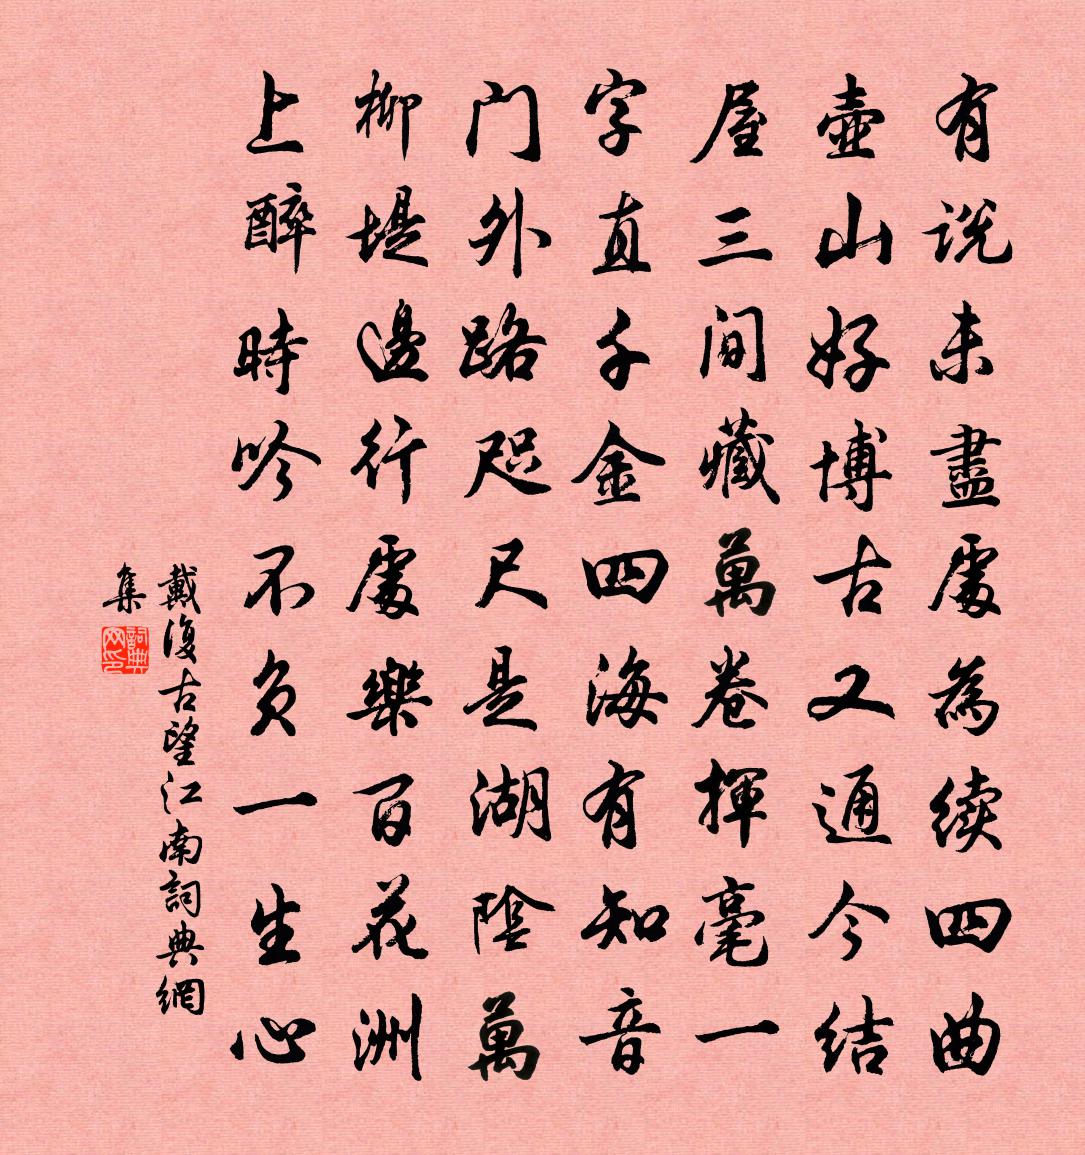 有说未盡處為续四曲
壶山好博古又通今结
屋三间藏萬卷揮毫一
字直千金四海有知音
门外路咫尺是湖陰萬
柳堤邊行處樂百花洲
上醉時吟不负一生心
戴復古望江南詞典網
集
詞典网印